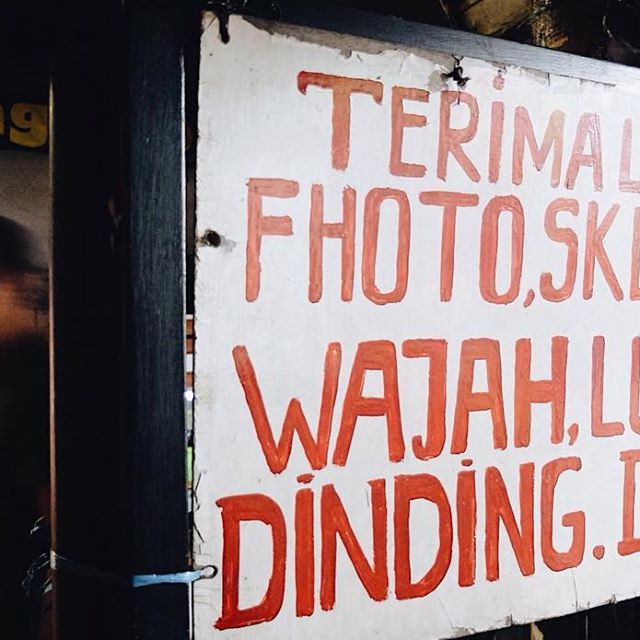 TERIMA L
FHOTO, SKE
WAJAH, LU
DINDING. D